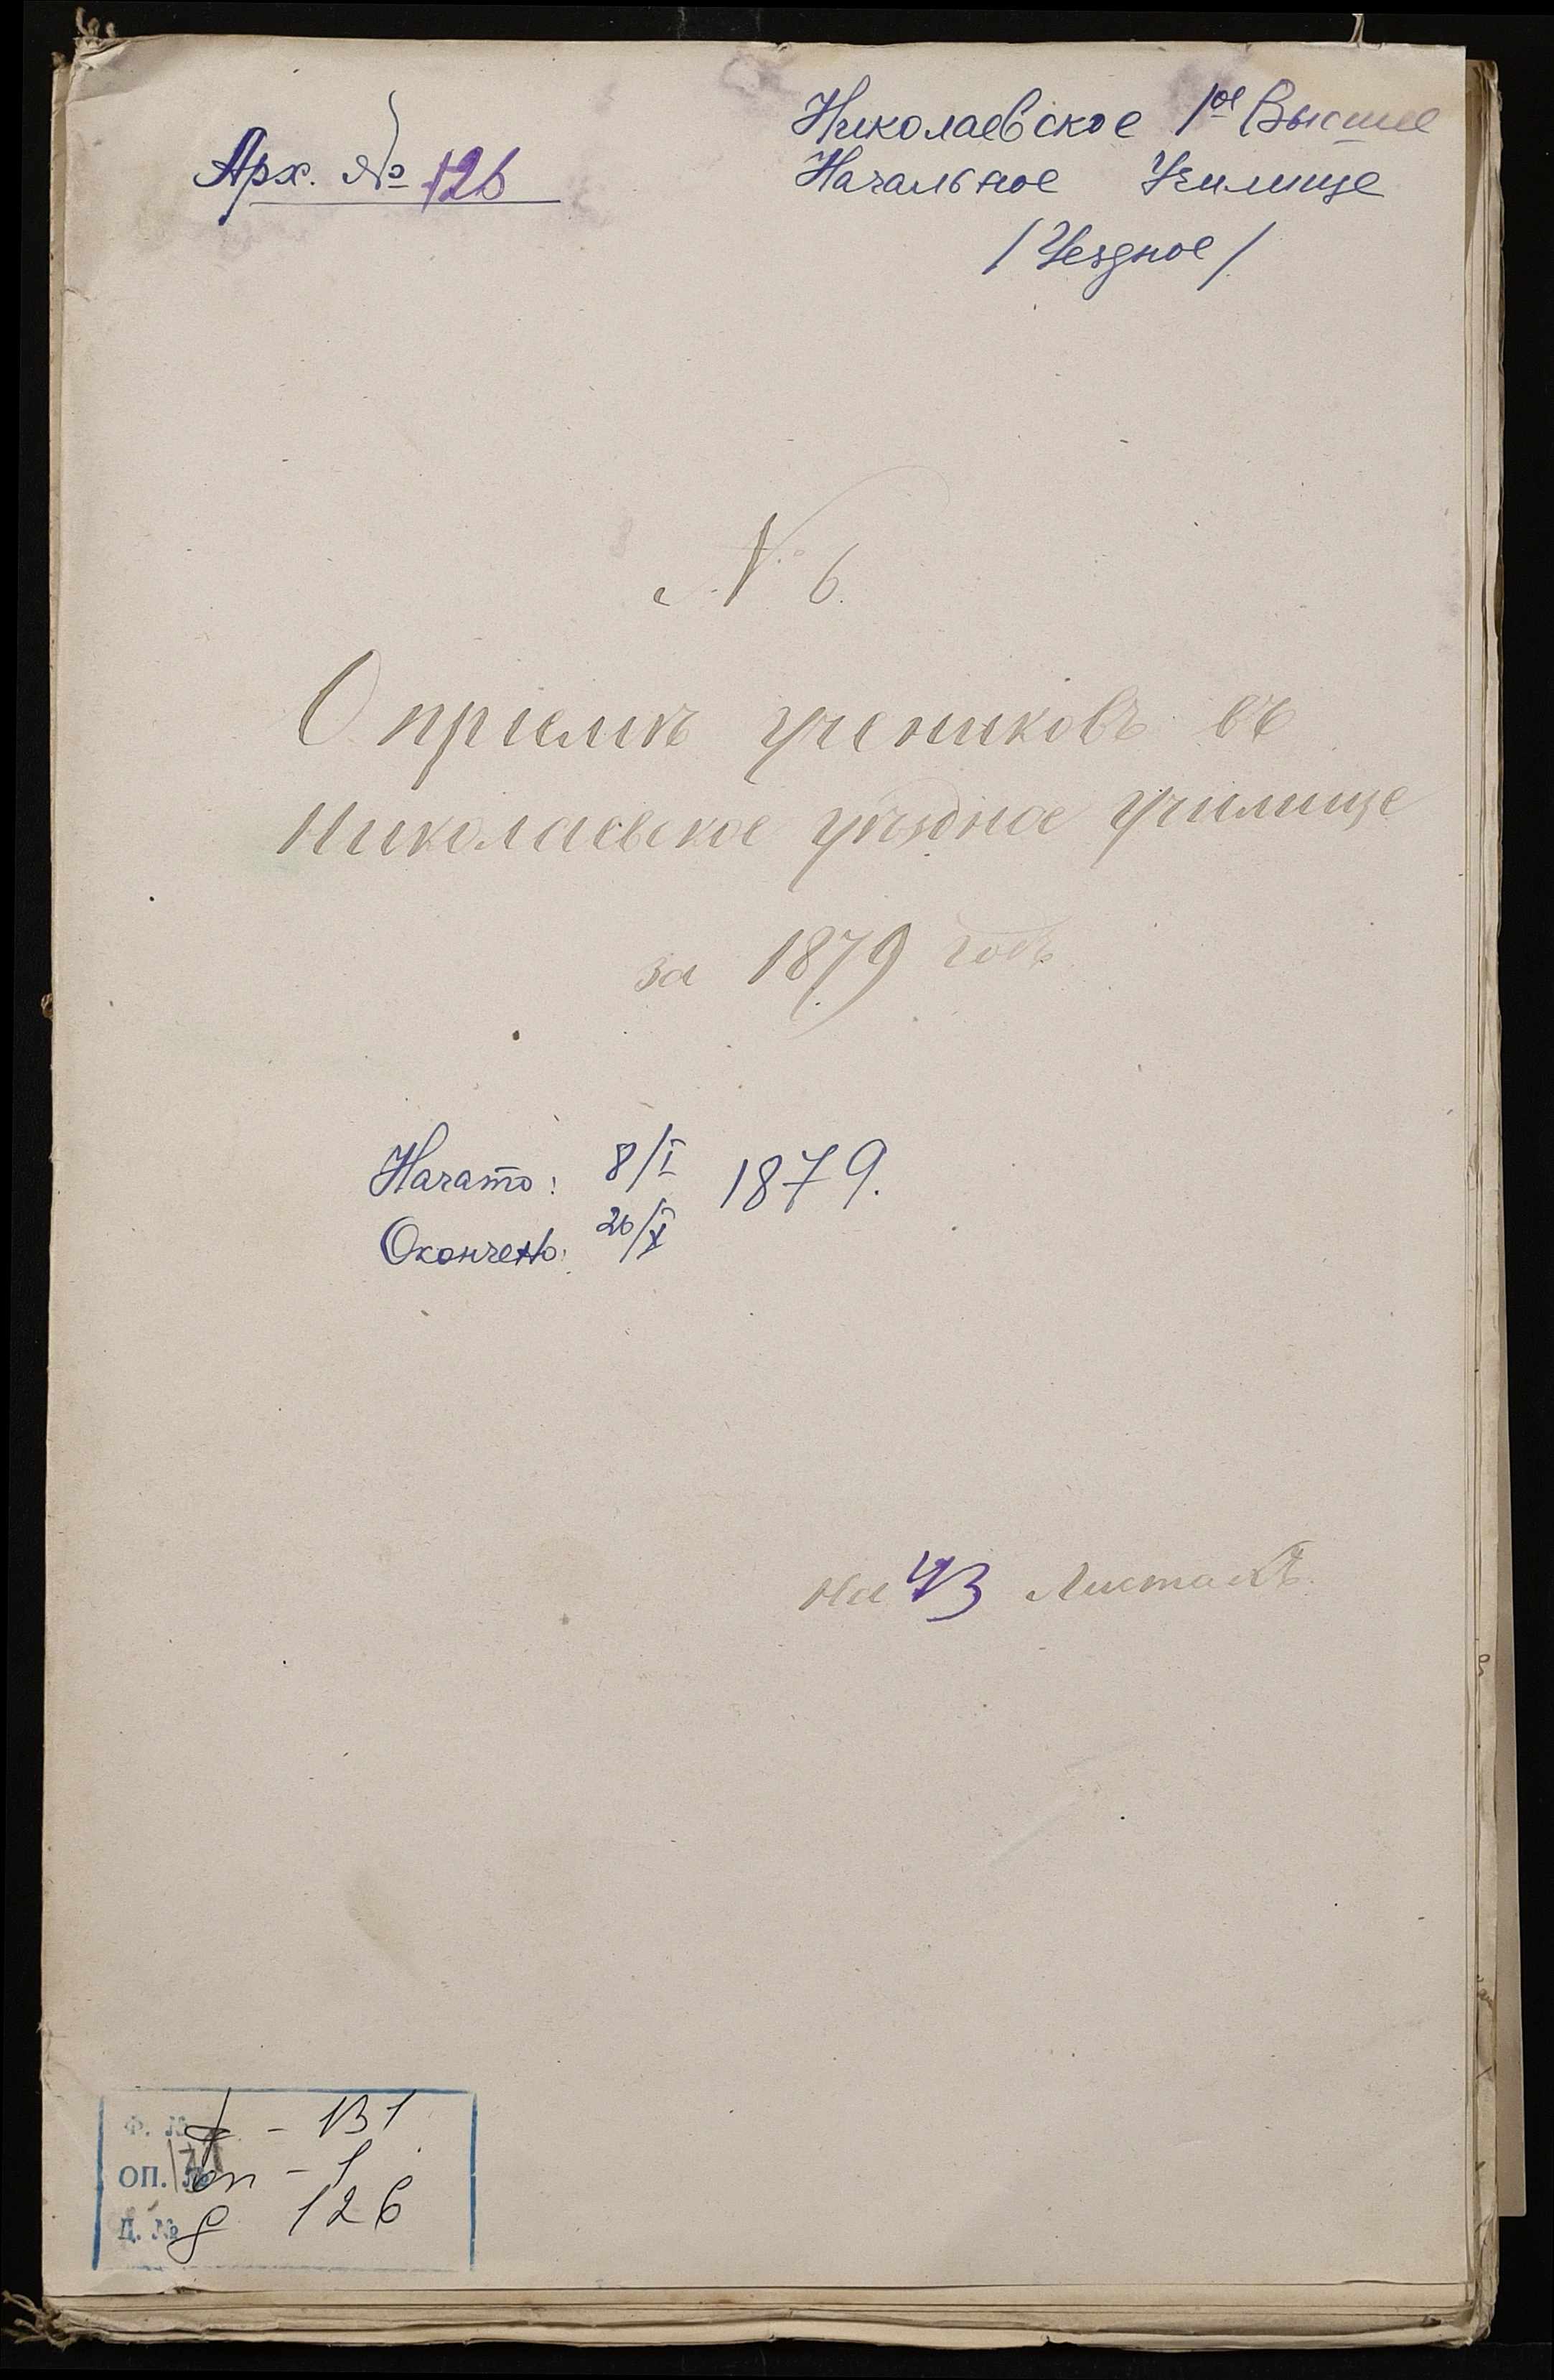 Арх. № 126
Николаевское 1ое Высшее
Начальное Училище
/ Уездное /
№ 6.
О приемѣ учениковъ въ
Николаевское уѣздное училище
за 1879 годъ
Начато: 8/I 1879.
Окончено: 26/X
на 43 Листахъ.
Ф. № ф - 131
ОП. № оп - 1
Д. № д 126